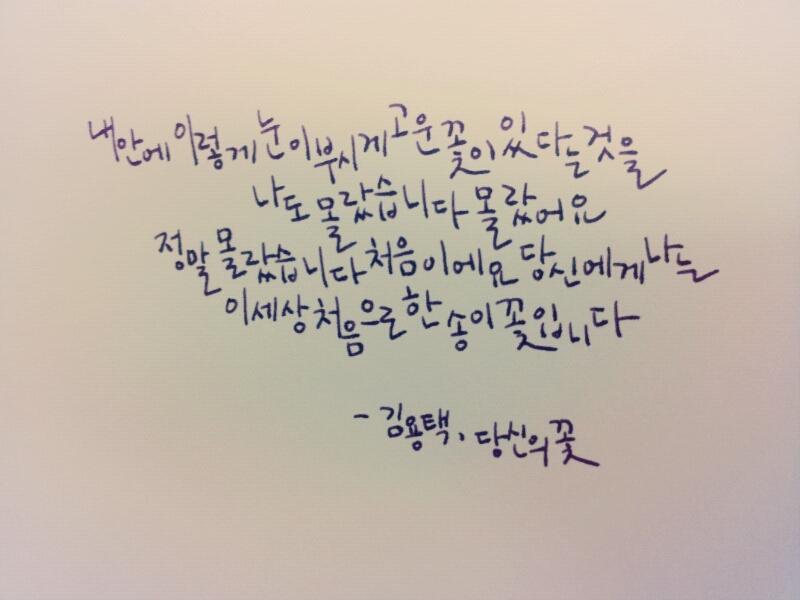 내 안에 이렇게 눈이 부시게 고운 꽃이 있다는 것을
나도 몰랐습니다 몰랐어요
정말 몰랐습니다 처음이에요 당신에게 나는
이 세상 처음으로 한 송이 꽃입니다
- 김용택, 당신의 꽃